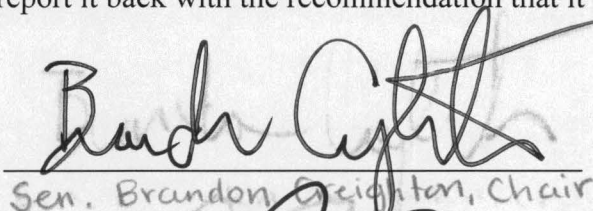 report it back with the recommendation that it
Brandon Creighton
Sen. Brandon Creighton, Chair